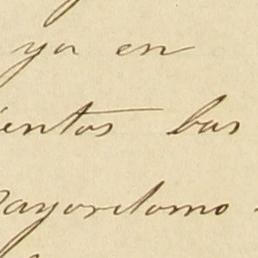 ya en
ientos bas
Mayordomo